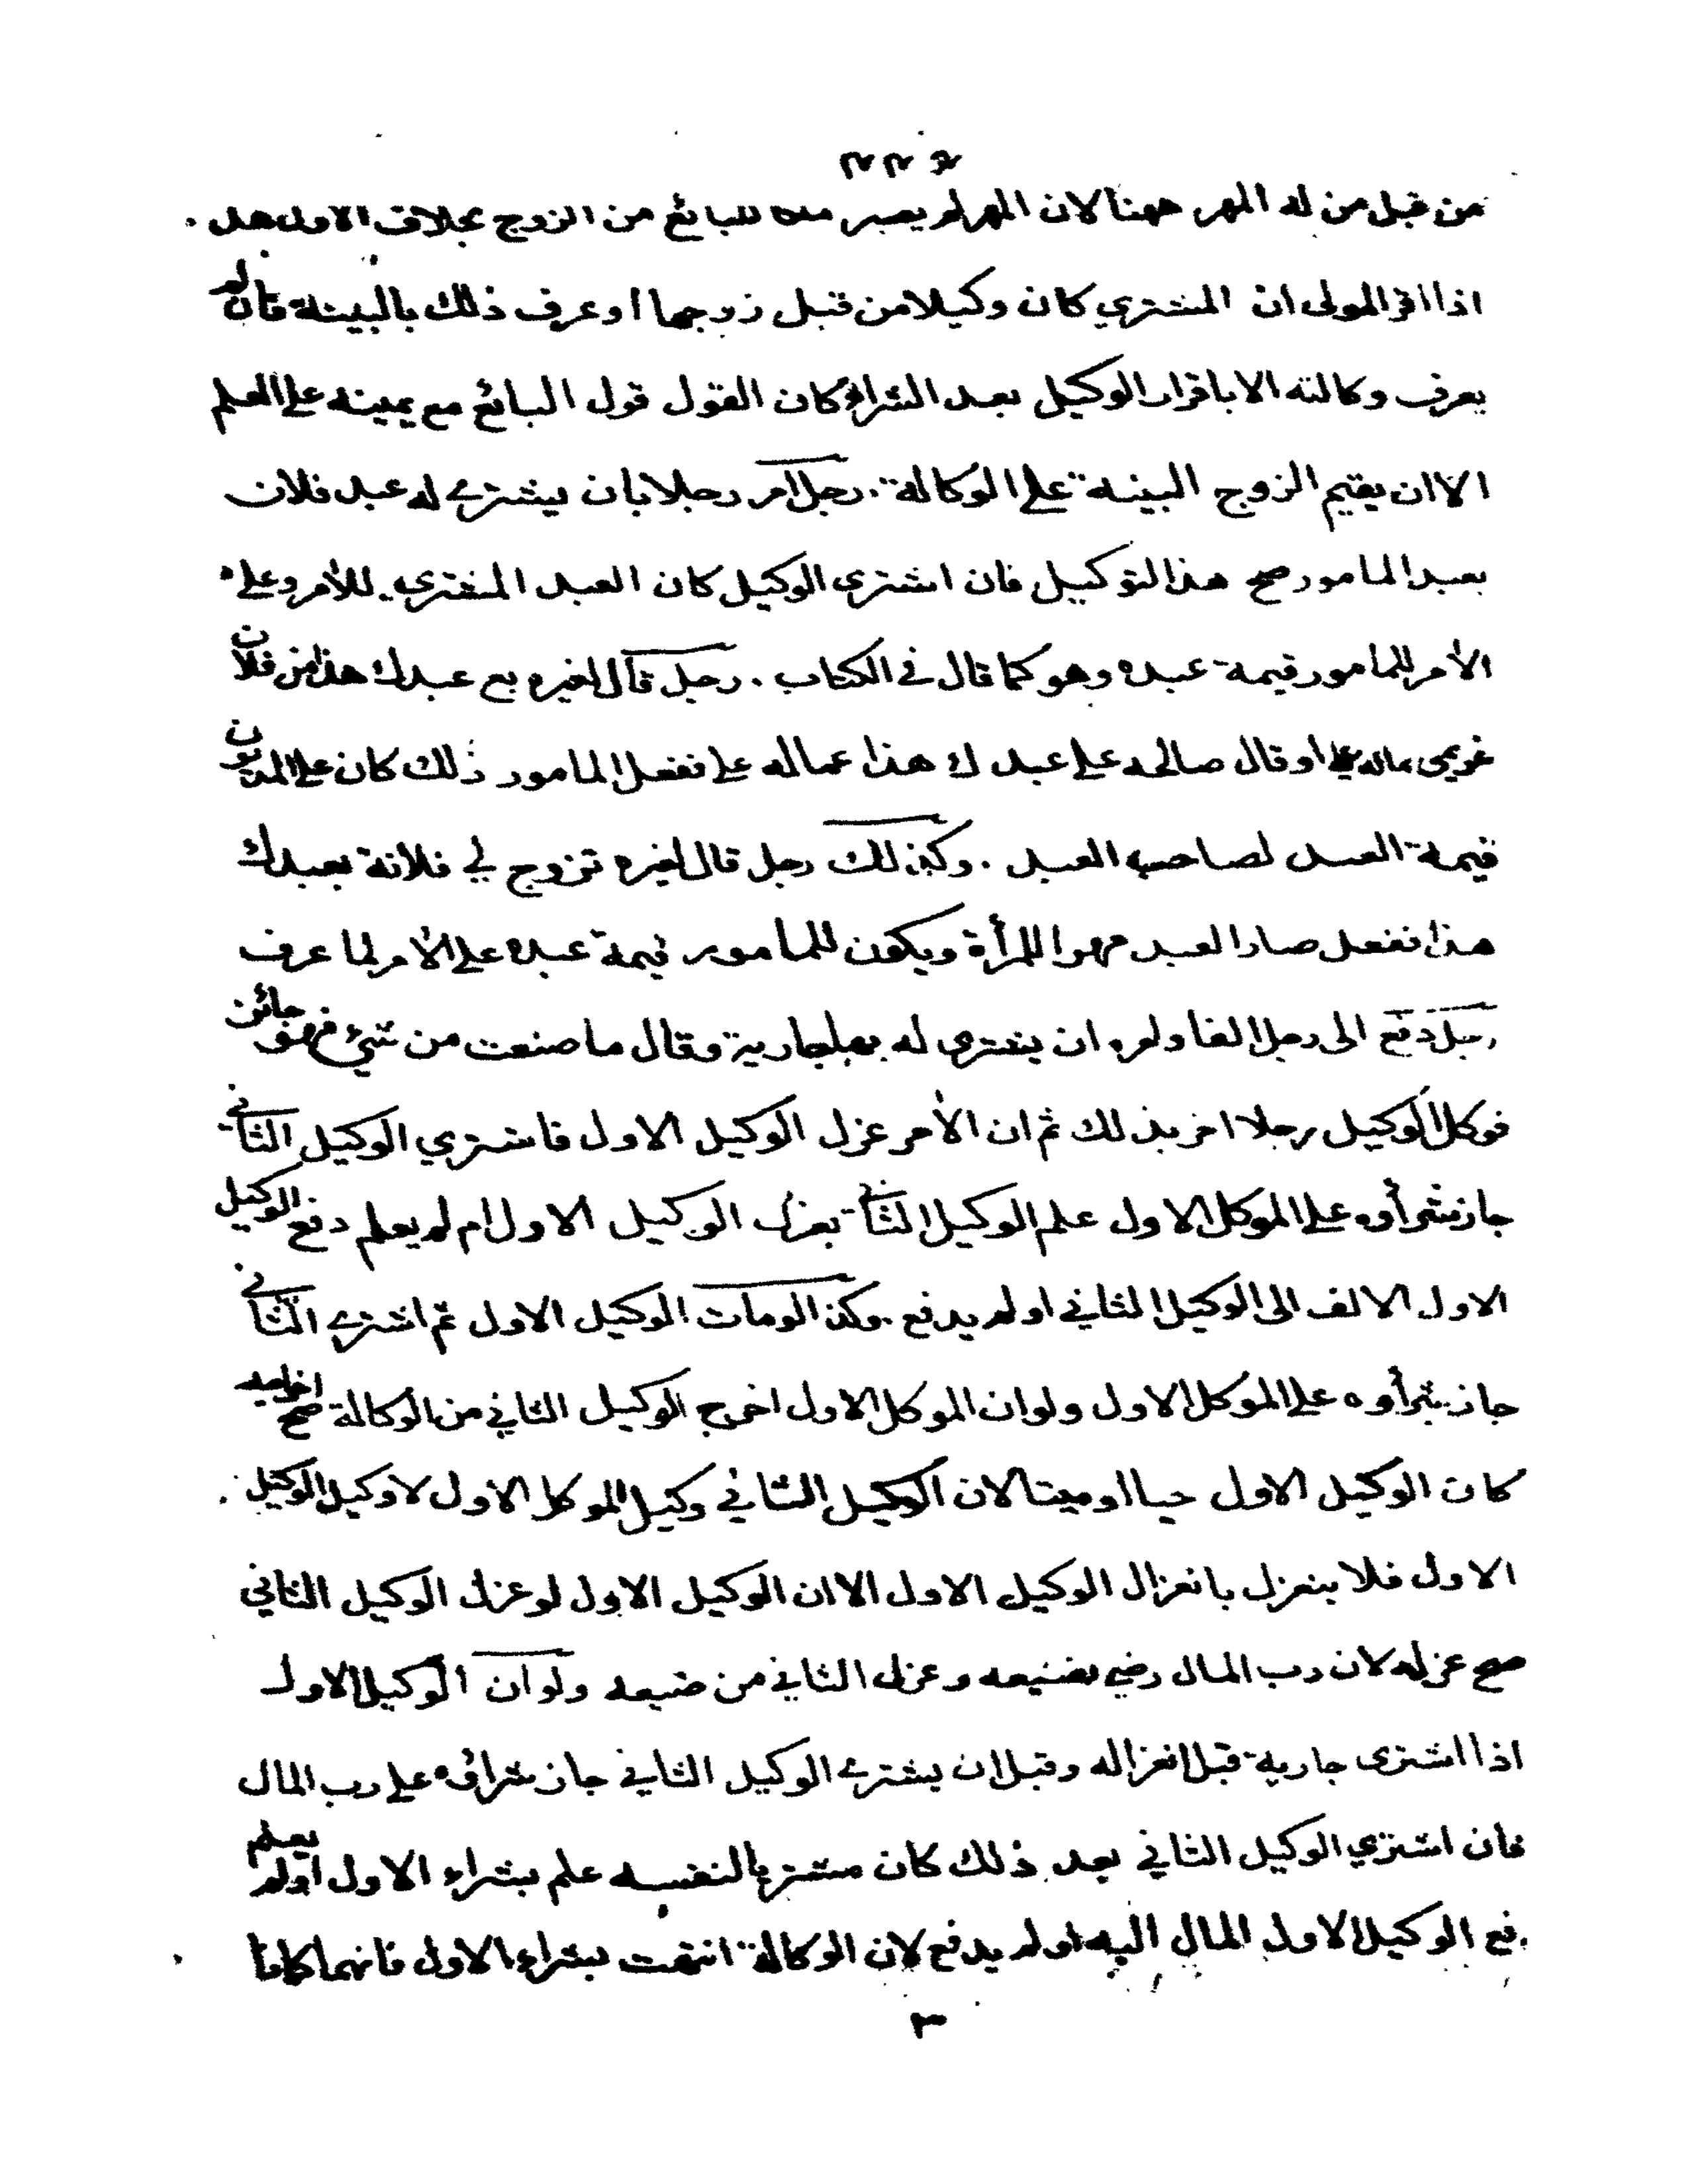 من قبل من له المهر ههنا لان المهر لم يصر ملكا للبائع من الزوج بخلاف الاول هذا
اذا اقر المولى ان المشتري كان وكيلا من قبل زوجها او عرف ذلك بالبينة فان لم
يعرف وكالته الا باقرار الوكيل بعد الشراء كان القول قول البائع مع يمينه على العلم
الا ان يقيم الزوج البينة على الوكالة. رجل امر رجلا بان يشتري له عبد فلان
بعبد المامور صح هذا التوكيل فان اشترى الوكيل كان العبد المشترى للآمر وعلى
الآمر للمامور قيمة عبده وهو كما قال في الكتاب. رجل قال لغيره بع عبدك هذا من فلان
غريمي بماله علي او قال صالحه على عبدك هذا عماله علي ففعل المامور ذلك كان على المديون
قيمة العبد لصاحب العبد. وكذلك رجل قال لغيره تزوج لي فلانة بعبدك
هذا ففعل صار العبد مهرا للمرأة ويكون للمامور قيمة عبده على الآمر لما عرف
رجل دفع الى رجل الفا وامره ان يشتري له بها جارية وقال ما صنعت من شئ فهو جائز
فوكل الوكيل رجلا اخر بذلك ثم ان الآمر عزل الوكيل الاول فاشتري الوكيل الثاني
جاز شرأوه على الموكل الاول علم الوكيل الثاني بعزل الوكيل الاول ام لم يعلم دفع الوكيل
الاول الالف الى الوكيل الثاني او لم يدفع. وكذا لومات الوكيل الاول ثم اشتري الثاني
جاز شرأوه على الموكل الاول ولو ان الموكل الاول اخرج الوكيل الثاني من الوكالة صح اخراجه
كان الوكيل الاول حيا او ميتا لان الوكيل الثاني وكيل الموكل الاول لا وكيل الوكيل
الاول فلا ينعزل بانعزال الوكيل الاول الا ان الوكيل الاول لو عزل الوكيل الثاني
صح عزله لان رب المال رضي بصنيعه وعزل الثاني من صنيعه ولو ان الوكيل الاول
اذا اشترى جارية قبل انعزاله وقبل ان يشتري الوكيل الثاني جاز شرائه على رب المال
فان اشتري الوكيل الثاني بعد ذلك كان مشتريا لنفسه علم بشراء الاول او لم يعلم
دفع الوكيل الاول المال اليه او لم يدفع لان الوكالة انتهت بشراء الاول فانهما كانا